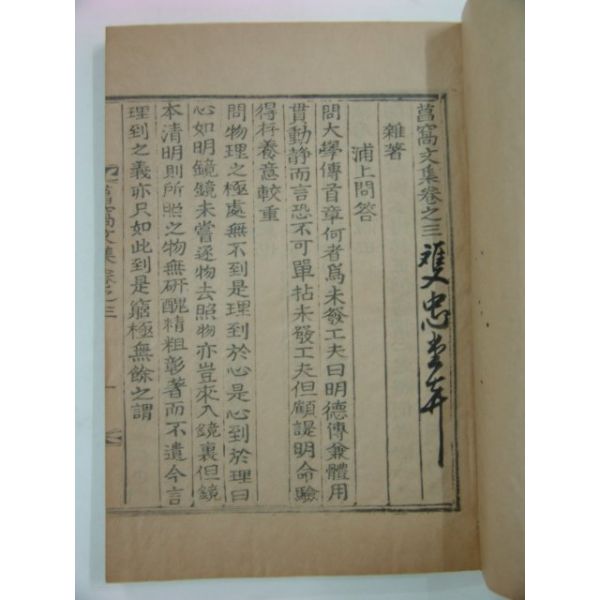 菖窩文集卷之三
雙忠堂
雜著
浦上問答
問大學傳首章何者爲未發工夫曰明德傳兼體用
貫動靜而言恐不可單拈未發工夫但顧諟明命驗
得存養意較重
問物理之極處無不到是理到於心是心到於理曰
心如明鏡鏡未嘗逐物去照物亦豈來入鏡裏但鏡
本清明則所照之物無硏醜精粗彰著而不遺今言
理到之義亦只如此到是窮極無餘之謂
菖窩文集卷之三
一